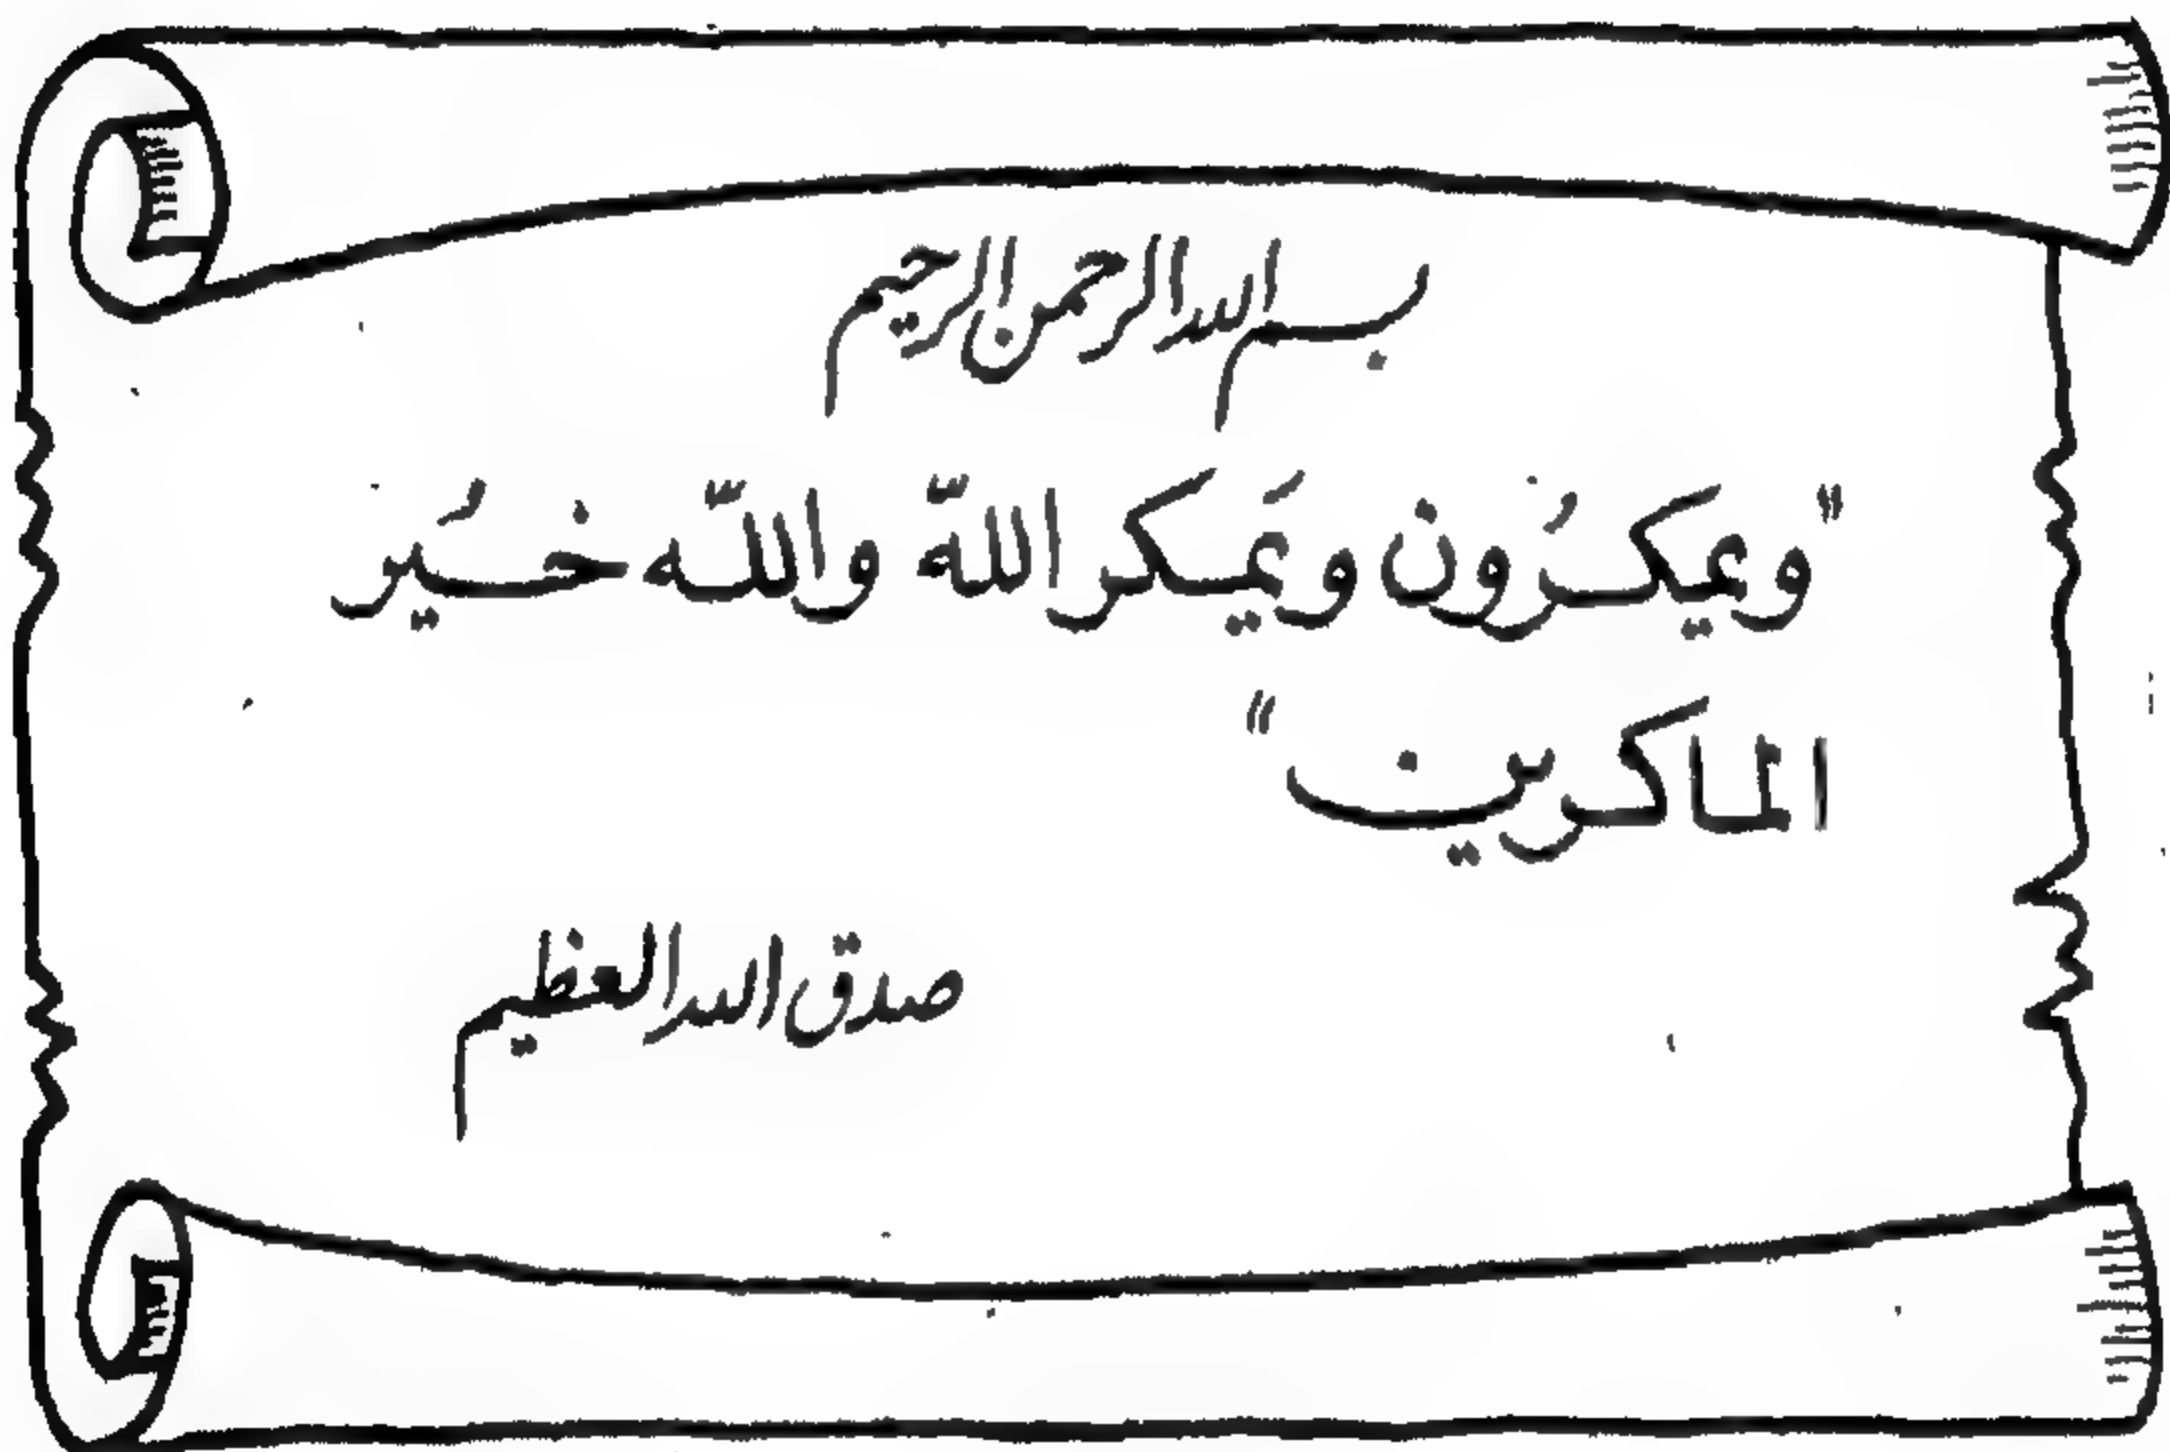 بسم الله الرحمن الرحيم
"ويمكرُون ويَمكر اللّه واللّه خيُر
الماكرين"
صدق الله العظيم